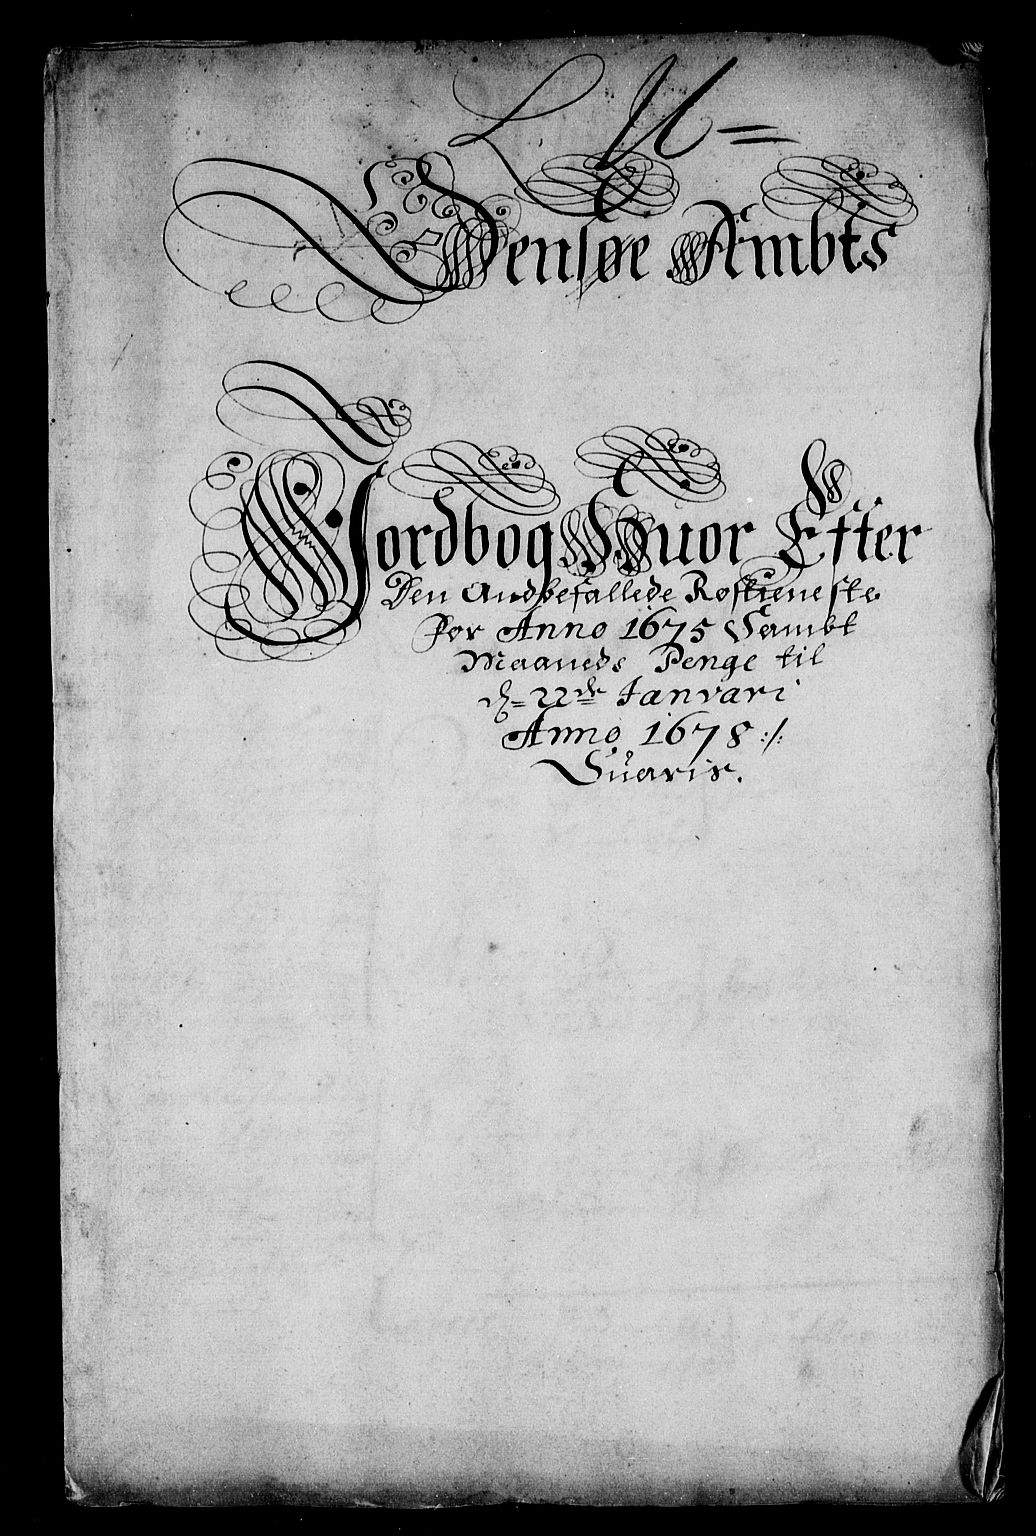 Wensøe Ambts
Jordbog Huor Efter
Den Andbefallede Rostieneste
For Anno 1675 Sambt
Maaneds Penge til
d= 22de Ianvari
Anno 1678 :/:
Suaris.